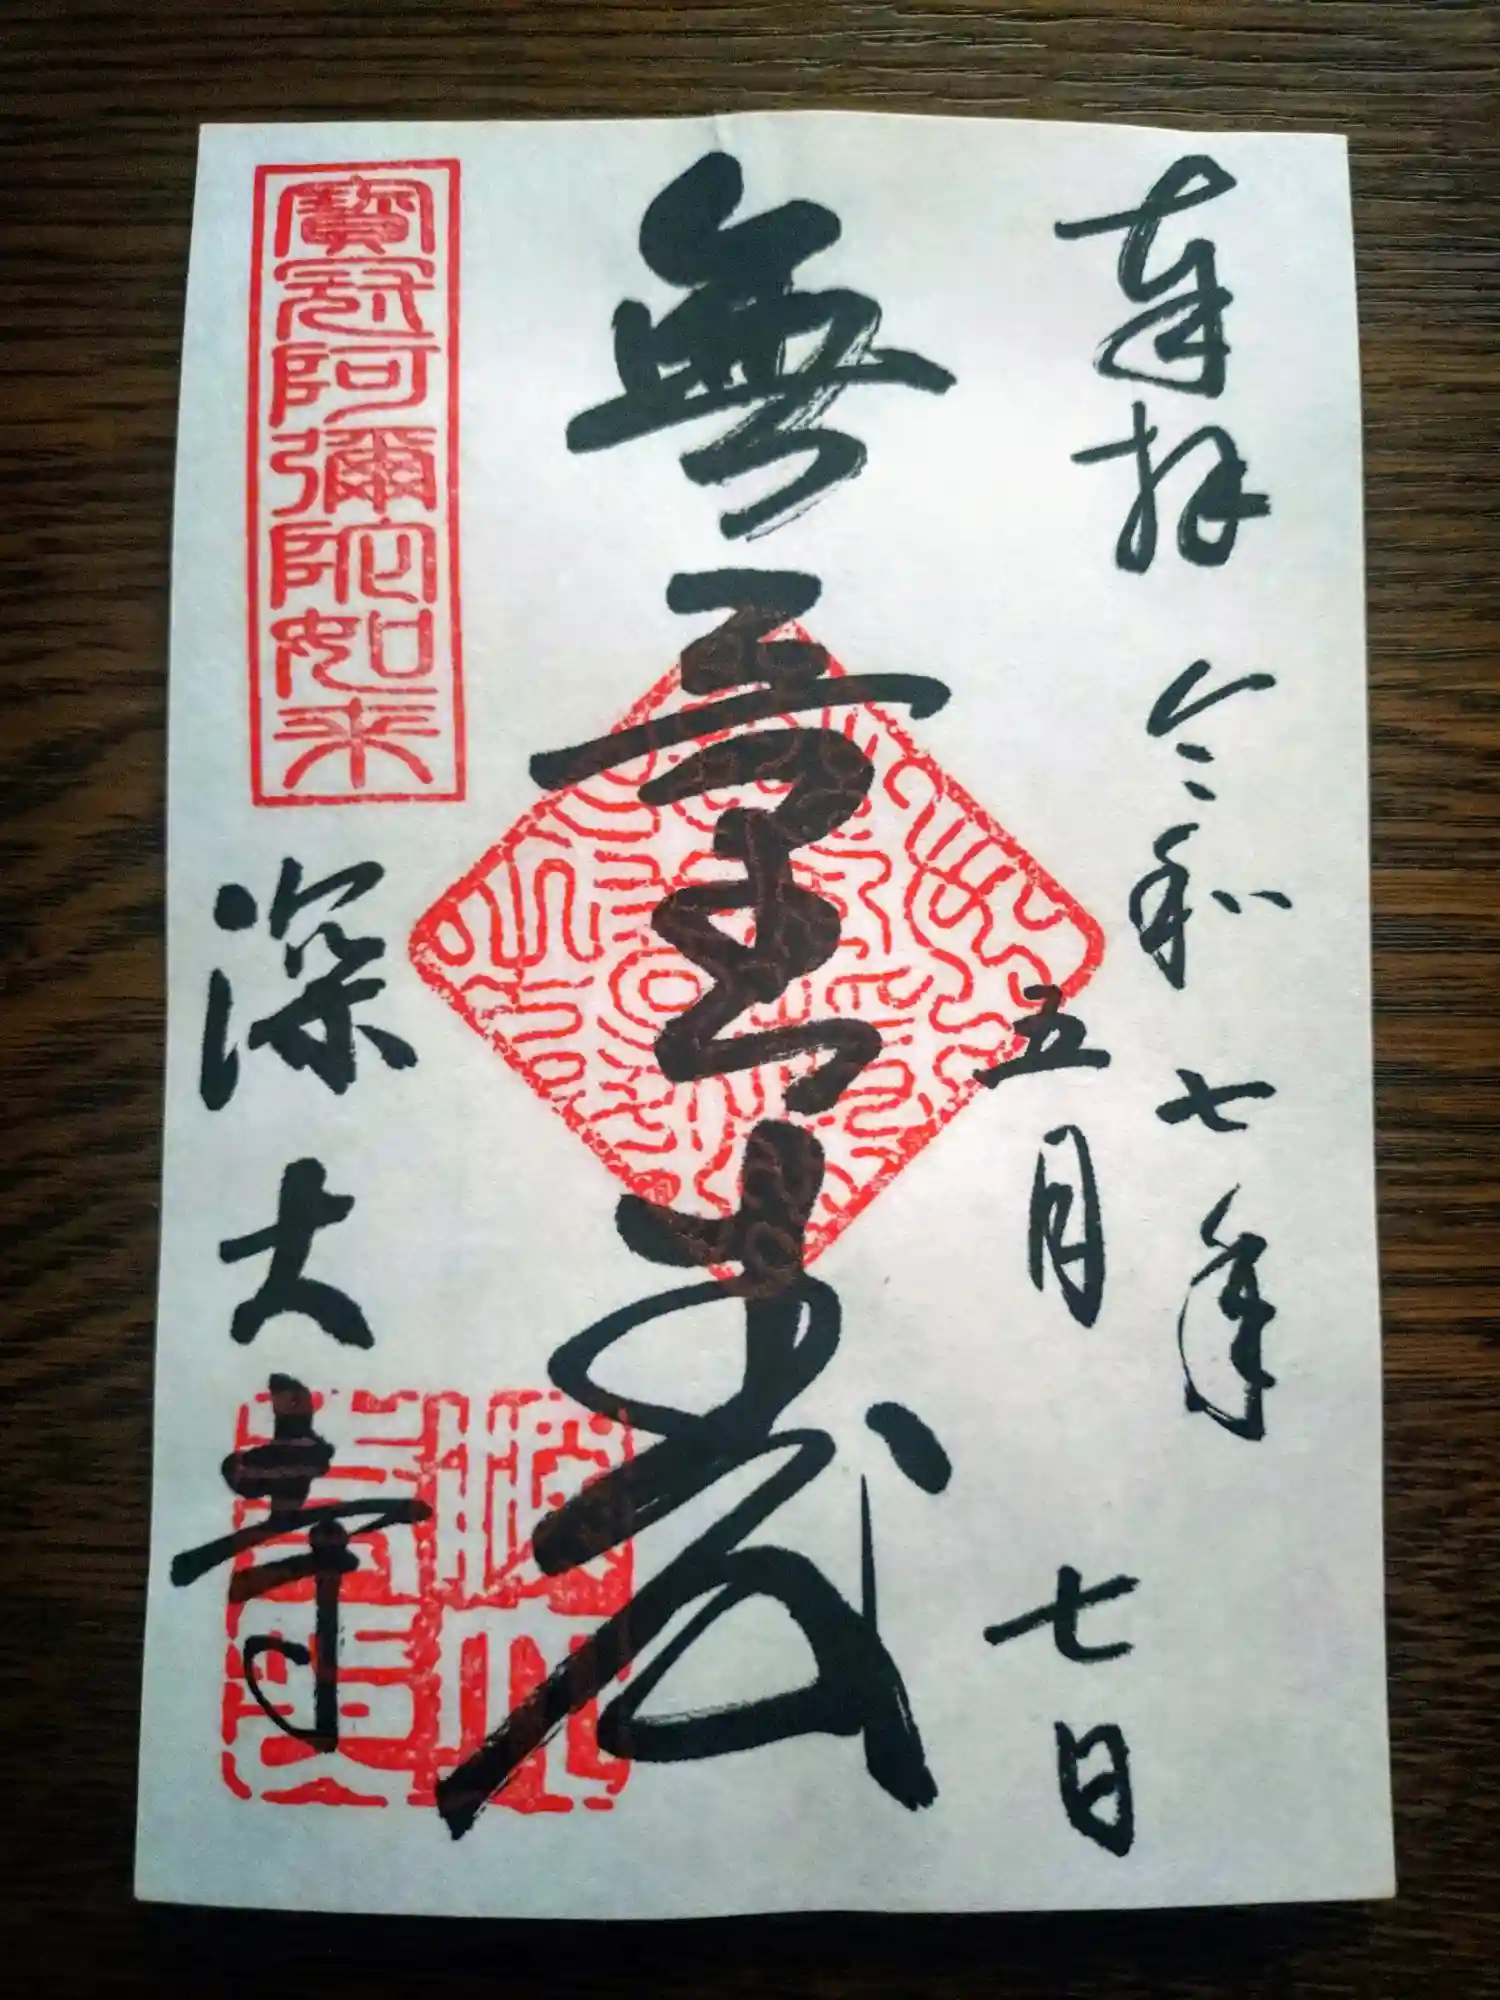 奉拝
令和七年
五月七日
無量壽
寶冠阿彌陀如来
深大寺